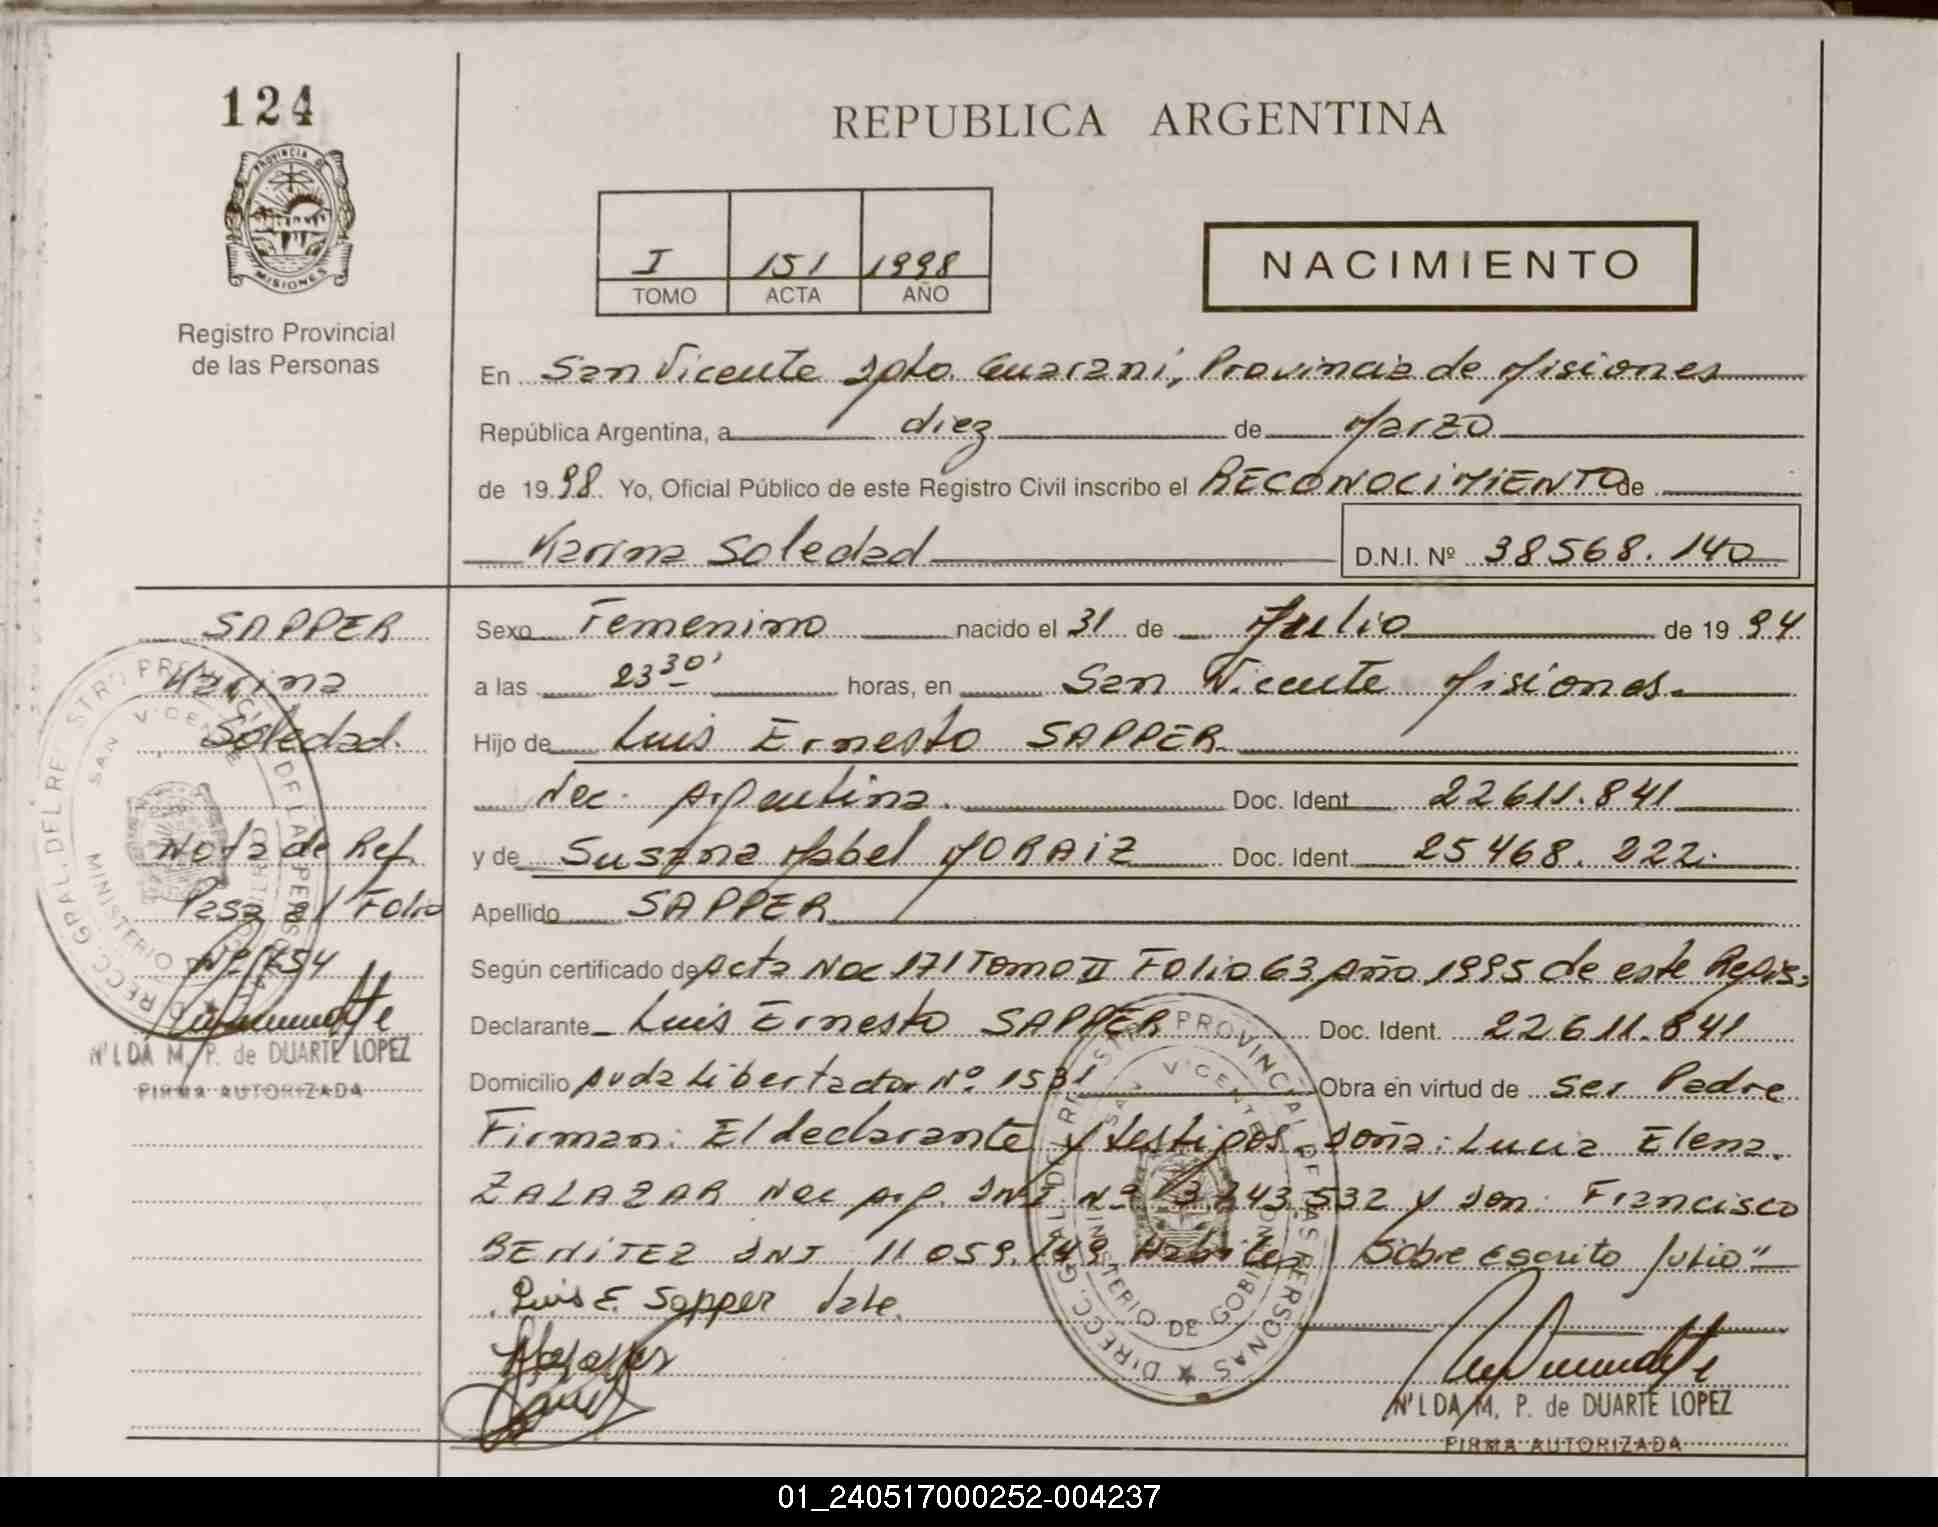 124
PROVINCIA DE
MISIONES
Registro Provincial
de las Personas
REPUBLICA ARGENTINA
I 151 1998
TOMO ACTA AÑO
NACIMIENTO
En San Vicente Dpto. Guaraní, Provincia de Misiones
República Argentina, a diez de Marzo
de 1998. Yo, Oficial Público de este Registro Civil inscribo el RECONOCIMIENTO de
Karina Soledad D.N.I. Nº 38568.140
SAPPER
Karina
Soledad.
Nota de Ref.
Pasa al Folio
Nº 154
N'LDA M. P. de DUARTE LOPEZ
FIRMA AUTORIZADA
Sexo Femenino nacido el 31 de Julio de 1994
a las 23 30' horas, en San Vicente Misiones.
Hijo de Luis Ernesto SAPPER
Nac. Argentina. Doc. Ident. 22611.841
y de Susana Mabel MORAIZ Doc. Ident. 25468.222.
Apellido SAPPER
Según certificado de Acta Nac 171 Tomo II Folio 63 Año 1995 de este Regis;
Declarante Luis Ernesto SAPPER Doc. Ident. 22.611.841
Domicilio Avda Libertador Nº 1531 Obra en virtud de Ser Padre
Firman: El declarante y testigos Doña: Lucia Elena.
ZALAZAR Nac Arg. DNI Nº 843.532 y Don: Francisco
BENITEZ DNI 11 059.149 Habiles Sobre Escrito Julio"
Luis E. Sapper Vale.
DIRECC. GRAL. DEL REGISTRO PROVINCIAL DE LAS PERSONAS
SAN VICENTE
MINISTERIO DE GOBIERNO
N'LDA M. P. de DUARTE LOPEZ
FIRMA AUTORIZADA
01_240517000252-004237